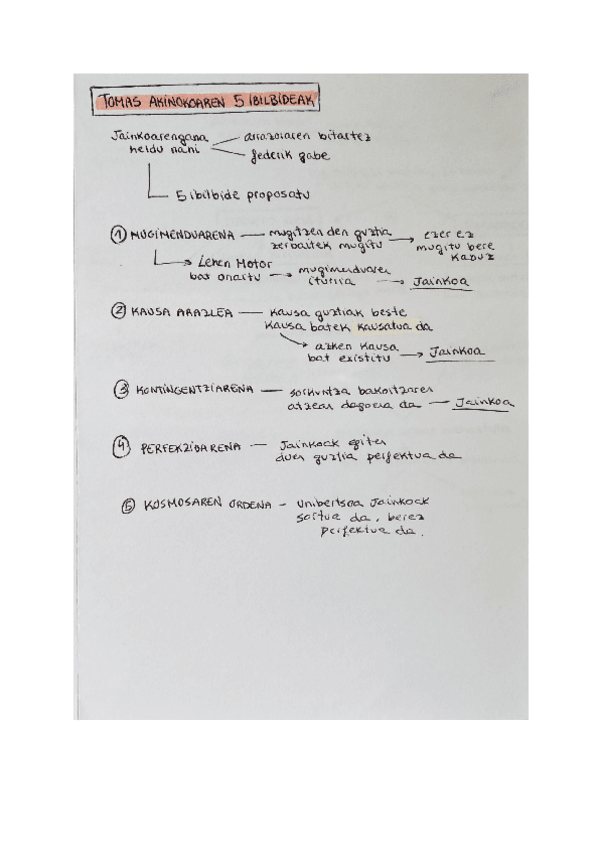 TOMAS AKINOKOAREN 5 IBILBIDEAK
Jainkoarengana
heldu nahi
arrazoiaren bitartez
federik gabe
5 ibilbide proposatu
① MUGIMENDUARENA — mugitzen den guztia
zerbaitek mugitu → ezer ez
mugitu bere
kabuz
→ Lehen Motor
bat onartu → mugimenduaren
iturria → Jainkoa
② KAUSA ARAZLEA — Kausa guztiak beste
kausa batek kausatua da
→ azken kausa
bat existitu → Jainkoa
③ KONTINGENTZIARENA — sorkuntza bakoitzaren
atzean dagoena da — Jainkoa
④ PERFEKZIOARENA — Jainkoak egiten
duen guztia perfektua da
⑤ KOSMOSAREN ORDENA - Unibertsoa Jainkoak
sortua da, berez
perfektua da.